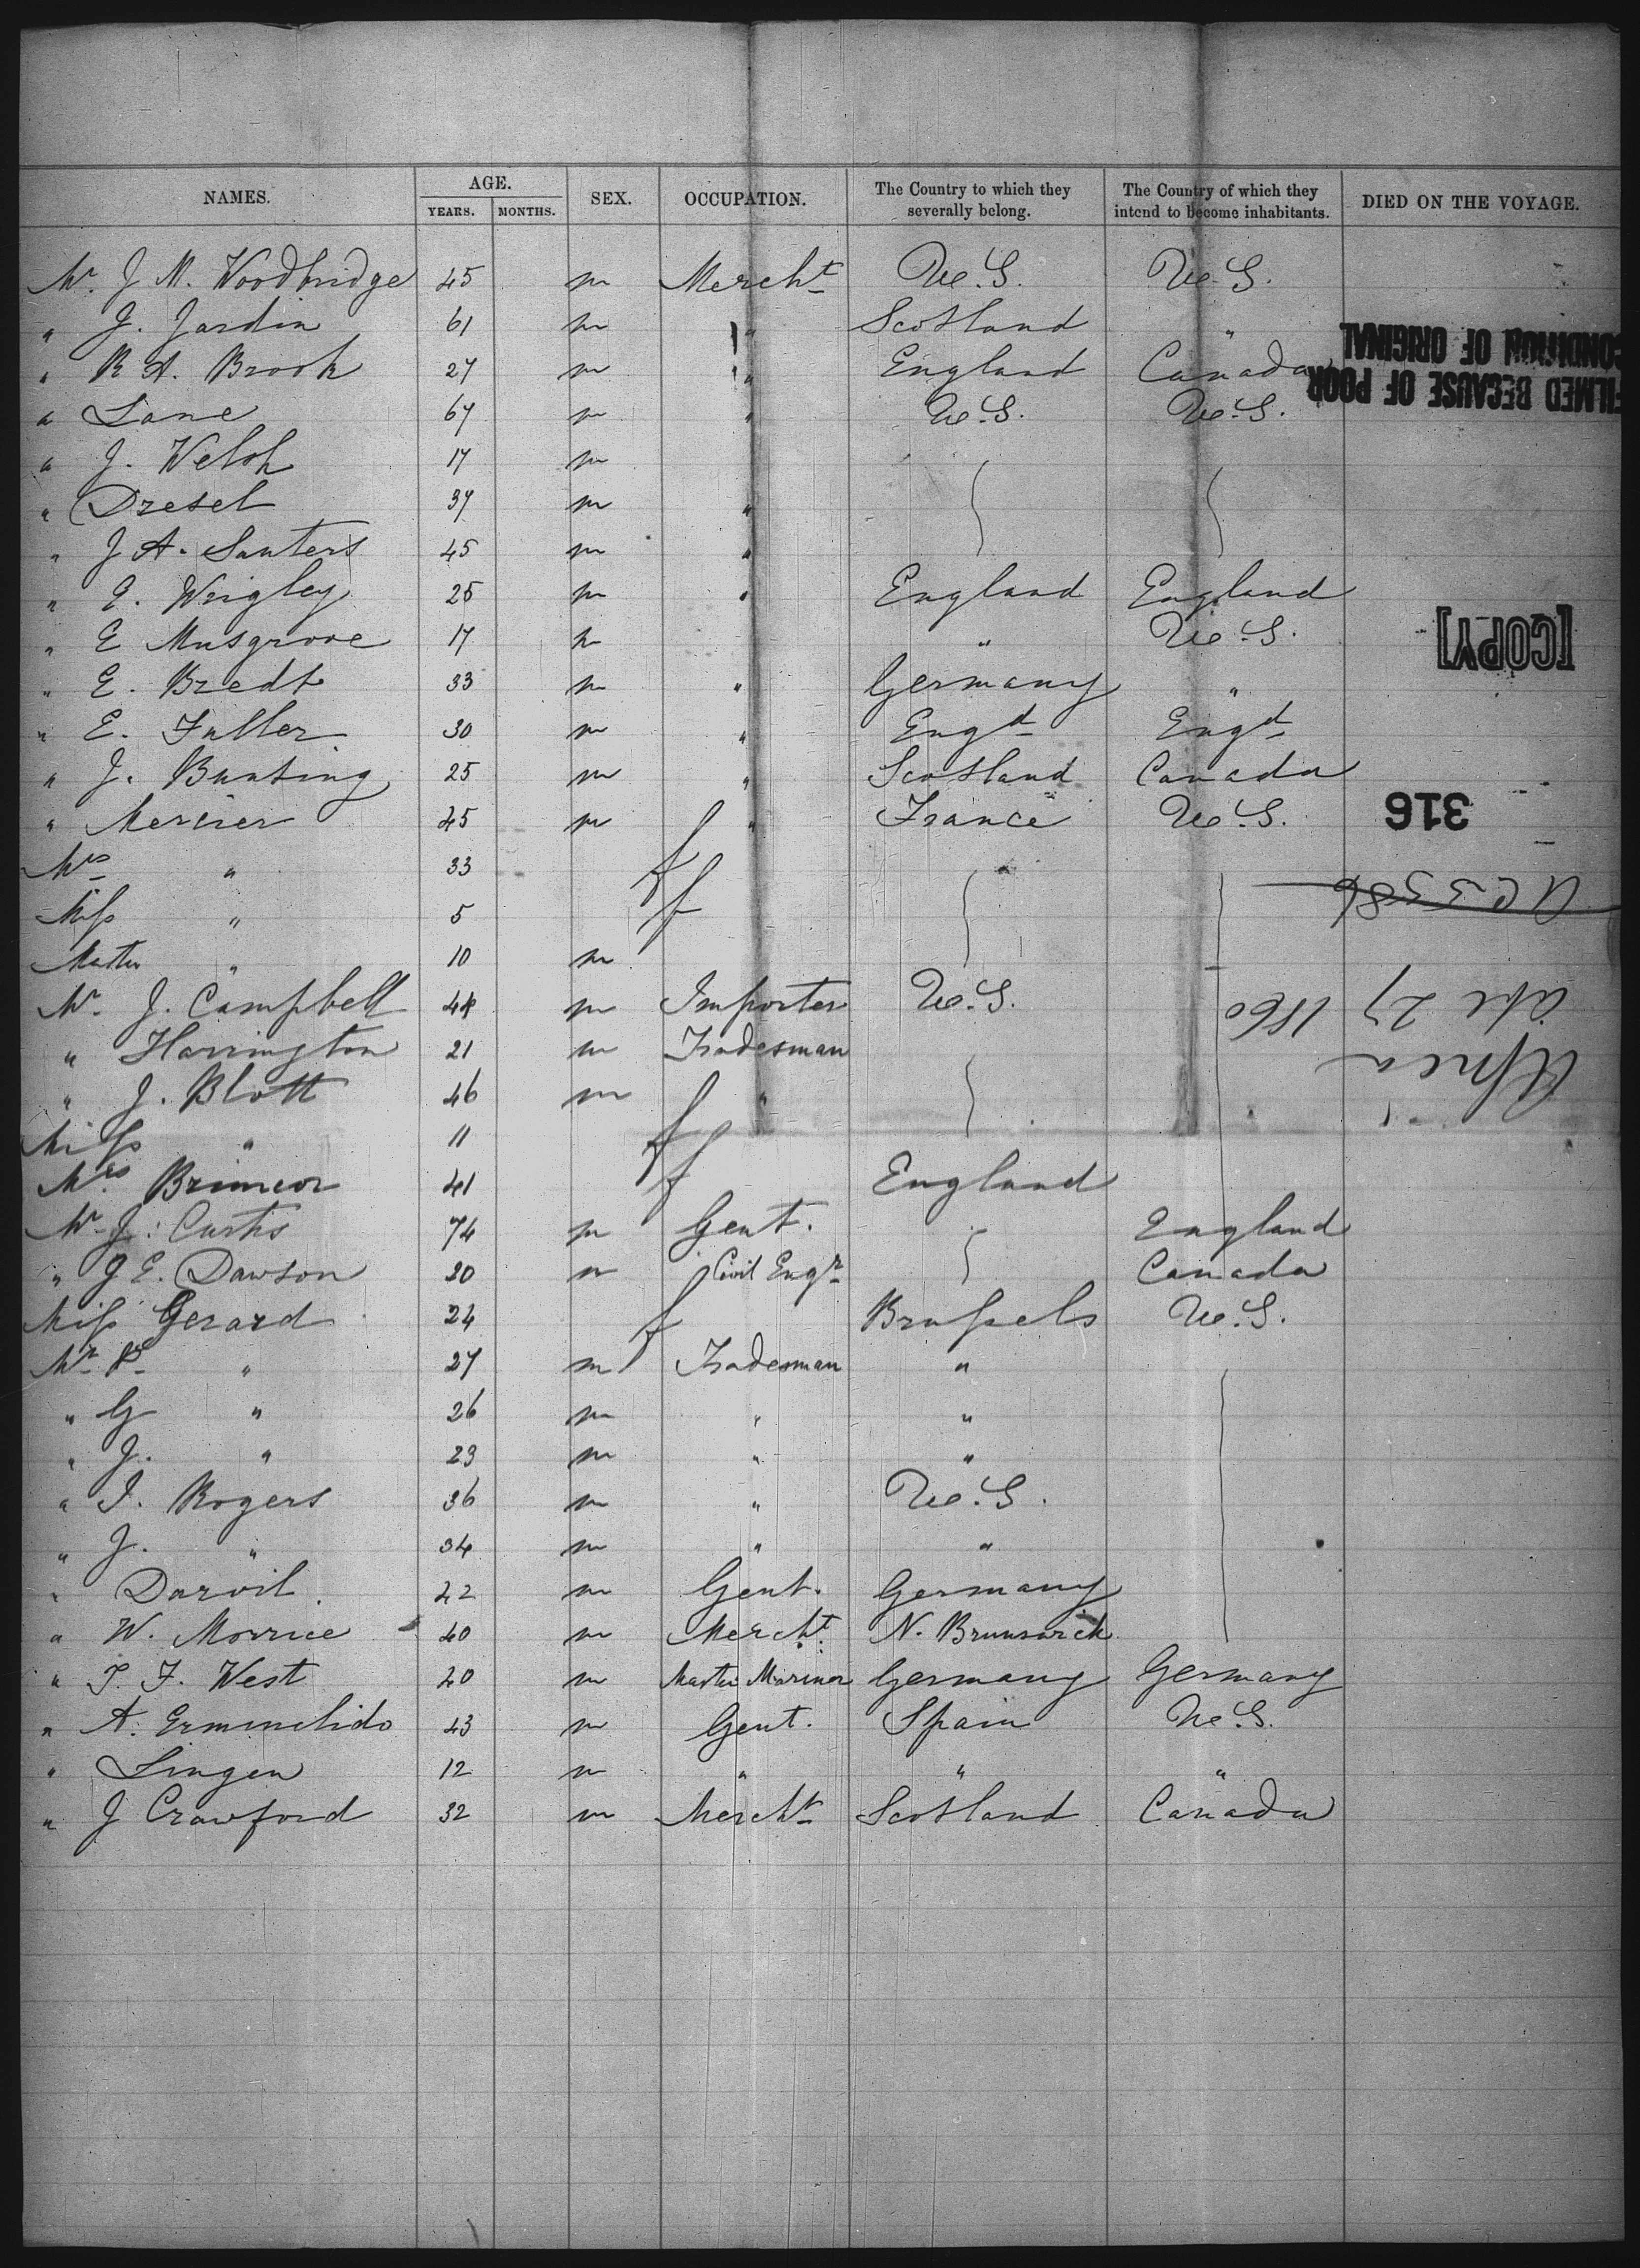 NAMES. AGE. YEARS. MONTHS. SEX. OCCUPATION. The Country to which they severally belong. The Country of which they intend to become inhabitants. DIED ON THE VOYAGE.
Mr. J M. Woodbridge 45 m Mercht U.S. U.S.
" J. Jardin 61 m " Scotland "
" R A. Brook 27 m " England Canada
" Lane 67 m " U.S. U.S.
" J. Welsh 17 m
" Dresel 37 m "
" J A. Santers 45 m "
" E. Wrigley 25 m " England England
" E Musgrove 17 m " U.S.
" E. Bredt 33 m " Germany "
" E. Fuller 30 m " Engd Engd
" J. Bunting 25 m " Scotland Canada
" Mercier 45 m " France U.S.
Mrs " 33 f
Miss " 5 f
Master " 10 m
Mr. J. Campbell 48 m Importer U.S.
" Harrington 21 m Tradesman
" J. Blott 46 m "
Miss " 11 f
Mrs. Brimeor 41 f England
Mr J. Curtis 74 m Gent. England
" J E. Dawson 20 m Civil Engr Canada
Miss Gerard 24 f Brussels U.S.
Mr P. " 27 m Tradesman "
" G " 26 m " "
" J. " 23 m " "
" I. Rogers 36 m " U.S.
" J. " 34 m " "
" Darvil. 22 m Gent. Germany
" W. Morrice 40 m Mercht. N. Brunswick
" T. F. West 20 m Master Mariner Germany Germany
" A. Ermenelido 43 m Gent. Spain U.S.
" Lingen 12 m " " "
" J Crawford 32 m Mercht Scotland Canada
Africa
1860
316
[COPY]
FILMED BECAUSE OF POOR
CONDITION OF ORIGINAL